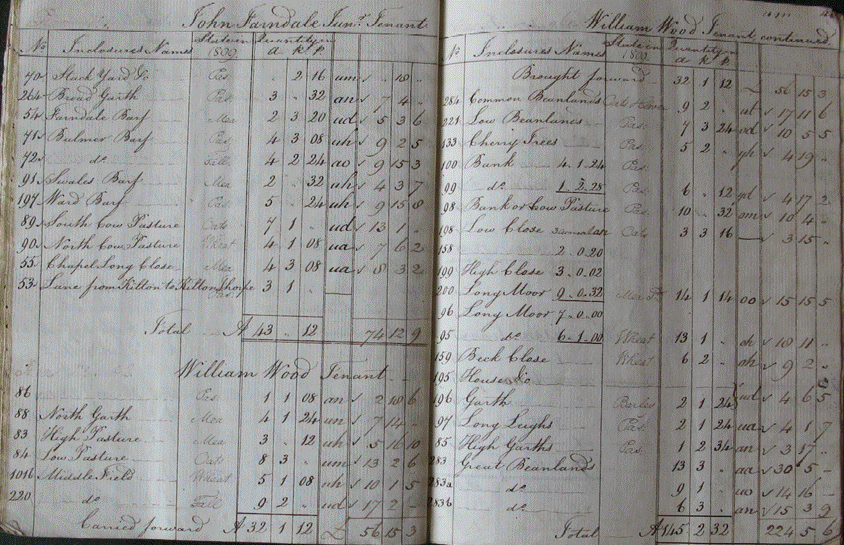 John Farndale Junr. Tenant
No Inclosures Names State in 1809 Quantity A R P
70 Stack Yard &c Pas . 2 16 um 18 .
264 Broad Garth Pas 3 . 32 an 7 4 .
54 Farndale Barf Mea 2 3 20 ud 5 3 6
71 Bulmer Barf Pas 4 3 08 uh 9 2 5
72 do Fall 4 2 24 ao 9 15 3
91 Swales Barf Mea 2 . 32 uh 4 3 7
197 Ward Barf Pas 5 . 24 uh 9 15 8
89 South Cow Pasture Oats 7 1 . ud 13 1 .
90 North Cow Pasture Wheat 4 1 08 ua 7 6 2
55 Chapel Long Close Mea 4 3 08 ua 8 3 2
53 Lane from Kilton to Kilton Thorpe Pas 3 1 .
Total A 43 . 12 74 12 9
William Wood Tenant
86 Pas 1 1 08 an 2 10 6
88 North Garth Mea 4 1 24 un 7 14 .
83 High Pasture Mea 3 . 12 uh 5 16 10
84 Low Pasture Oats 8 3 . um 13 2 6
101b Middle Field Wheat 5 1 08 uh 10 1 5
220 do Fall 9 2 . ud 17 2 .
Carried forward A 32 1 12 £ 56 15 3
William Wood Tenant continued
No Inclosures Names State in 1809 Quantity A R P
Brought forward 32 1 12 56 15 3
284 Common Beanlands Oats 9 2 . ut 17 11 6
221 Low Beanlands Pas 7 3 24 od 10 5 5
133 Cherry Trees Pas 5 2 . yh 4 19 .
100 Bank 4.1.24
99 do 1.2.28 Pas 6 . 12 yd 4 17 2
98 Bank or Cow Pasture Pas 10 . 32 om 10 4 .
198 Low Close Oats 3 3 16 3 15 .
158 2.0.20
199 High Close 3.0.02
200 Long Moor 9.0.32 14 1 14 oo 15 15 5
96 Long Moor 7.0.00
95 do 6.1.00 Wheat 13 1 . oh 18 11 .
159 Beck Close Wheat 6 2 . oh 9 2 .
195 House &c
196 Garth Barley 2 1 24 ud 4 6 5
197 Long Leighs Pas 2 1 24 ua 4 1 7
85 High Garths Pas 1 2 34 an 3 17 .
283 Great Beanlands 13 3 . aa 30 5 .
283a do 9 1 . uo 14 16 .
283b do 6 3 . an 15 3 9
Total A 145 2 32 224 5 6